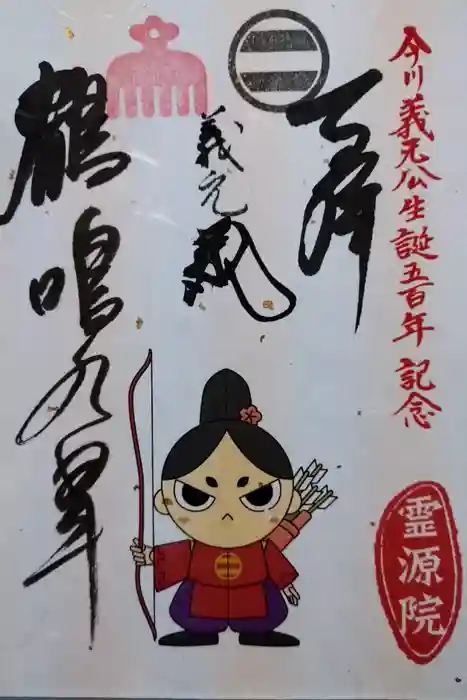 今川義元公生誕五百年記念
奉拝
義元
鶴鳴九皐
霊源院